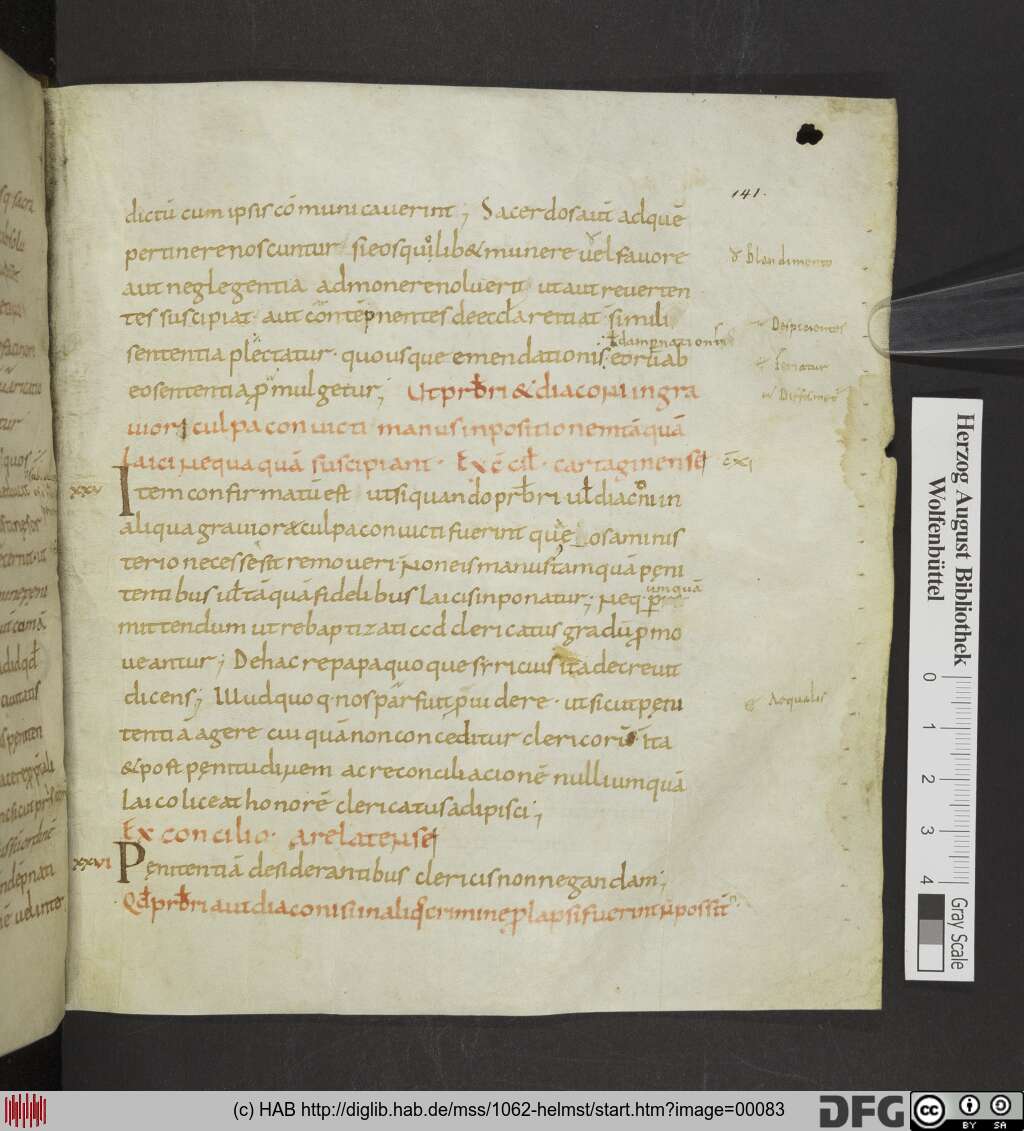 141.
dictū cum ipsis cōmunicaverint; Sacerdos aut̄ ad quē
pertinere noscuntur si eos quolib& munere vel favore
ł blandimento
aut neglegentia admonere noluerit ut aut reverten
tes suscipiat aut contēpnentes de etcła reitiat simili
Despicientes
ł dampnationis
sententia plectatur quousque emendationis eorū ab
feriatur
eo sententia p̄mulgetur; Ut prb̄ri & diaconi in gra
viori culpa convicti manus inpositionem tāquā
laici nequaquā suscipiant. Ex c̄cił. cartaginense
c̄ xi
xxv
Item confirmatū est ut si quando prb̄ri uł diaconi in
aliqua graviore culpa convicti fuerint que eos a minis
terio necesse sit removeri non eis manus tamquā peni
tentibus uł tāquā fidelibus laicis inponatur; neq. p̄
umquā
mittendum ut rebaptizati ad clericatus gradū p̄mo
veantur; De hac re papa quoque syricius ita decrevit
dicens; Illud quoq. nos par fuit p̄videre. ut sicut peni
Aequalis
tentiā agere cuiquā non conceditur clericorū ita
& post penitudinem ac reconciliacionē nulli umquā
laico liceat honorē clericatus adipisci;
Ex concilio. arelatense
xxvi
Penitentiā desiderantibus clericis non negandam;
Qd̄ prb̄ri aut diaconi si in aliq̄ crimine p̄lapsi fuerint n̄ possit
Herzog August Bibliothek
Wolfenbüttel
0 1 2 3 4
Gray Scale
(c) HAB http://diglib.hab.de/mss/1062-helmst/start.htm?image=00083
DFG
cc BY SA